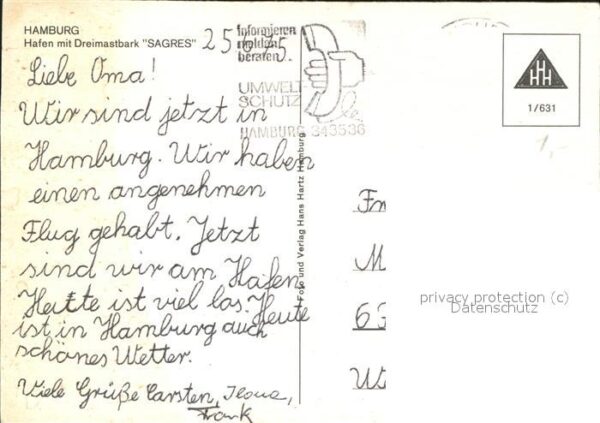 HAMBURG
Hafen mit Dreimastbark "SAGRES"
25.6.75.
Informieren
melden
beraten
UMWELT
SCHUTZ
HAMBURG 343536
HHH
1/631
1,-
Liebe Oma!
Wir sind jetzt in
Hamburg. Wir haben
einen angenehmen
Flug gehabt. Jetzt
sind wir am Hafen
Heute ist viel los. Heute
ist in Hamburg auch
schönes Wetter.
Viele Grüße Carsten, Ilona,
Frank
Foto und Verlag Hans Hartz Hamburg
Fr
M
63
W
privacy protection (c)
Datenschutz